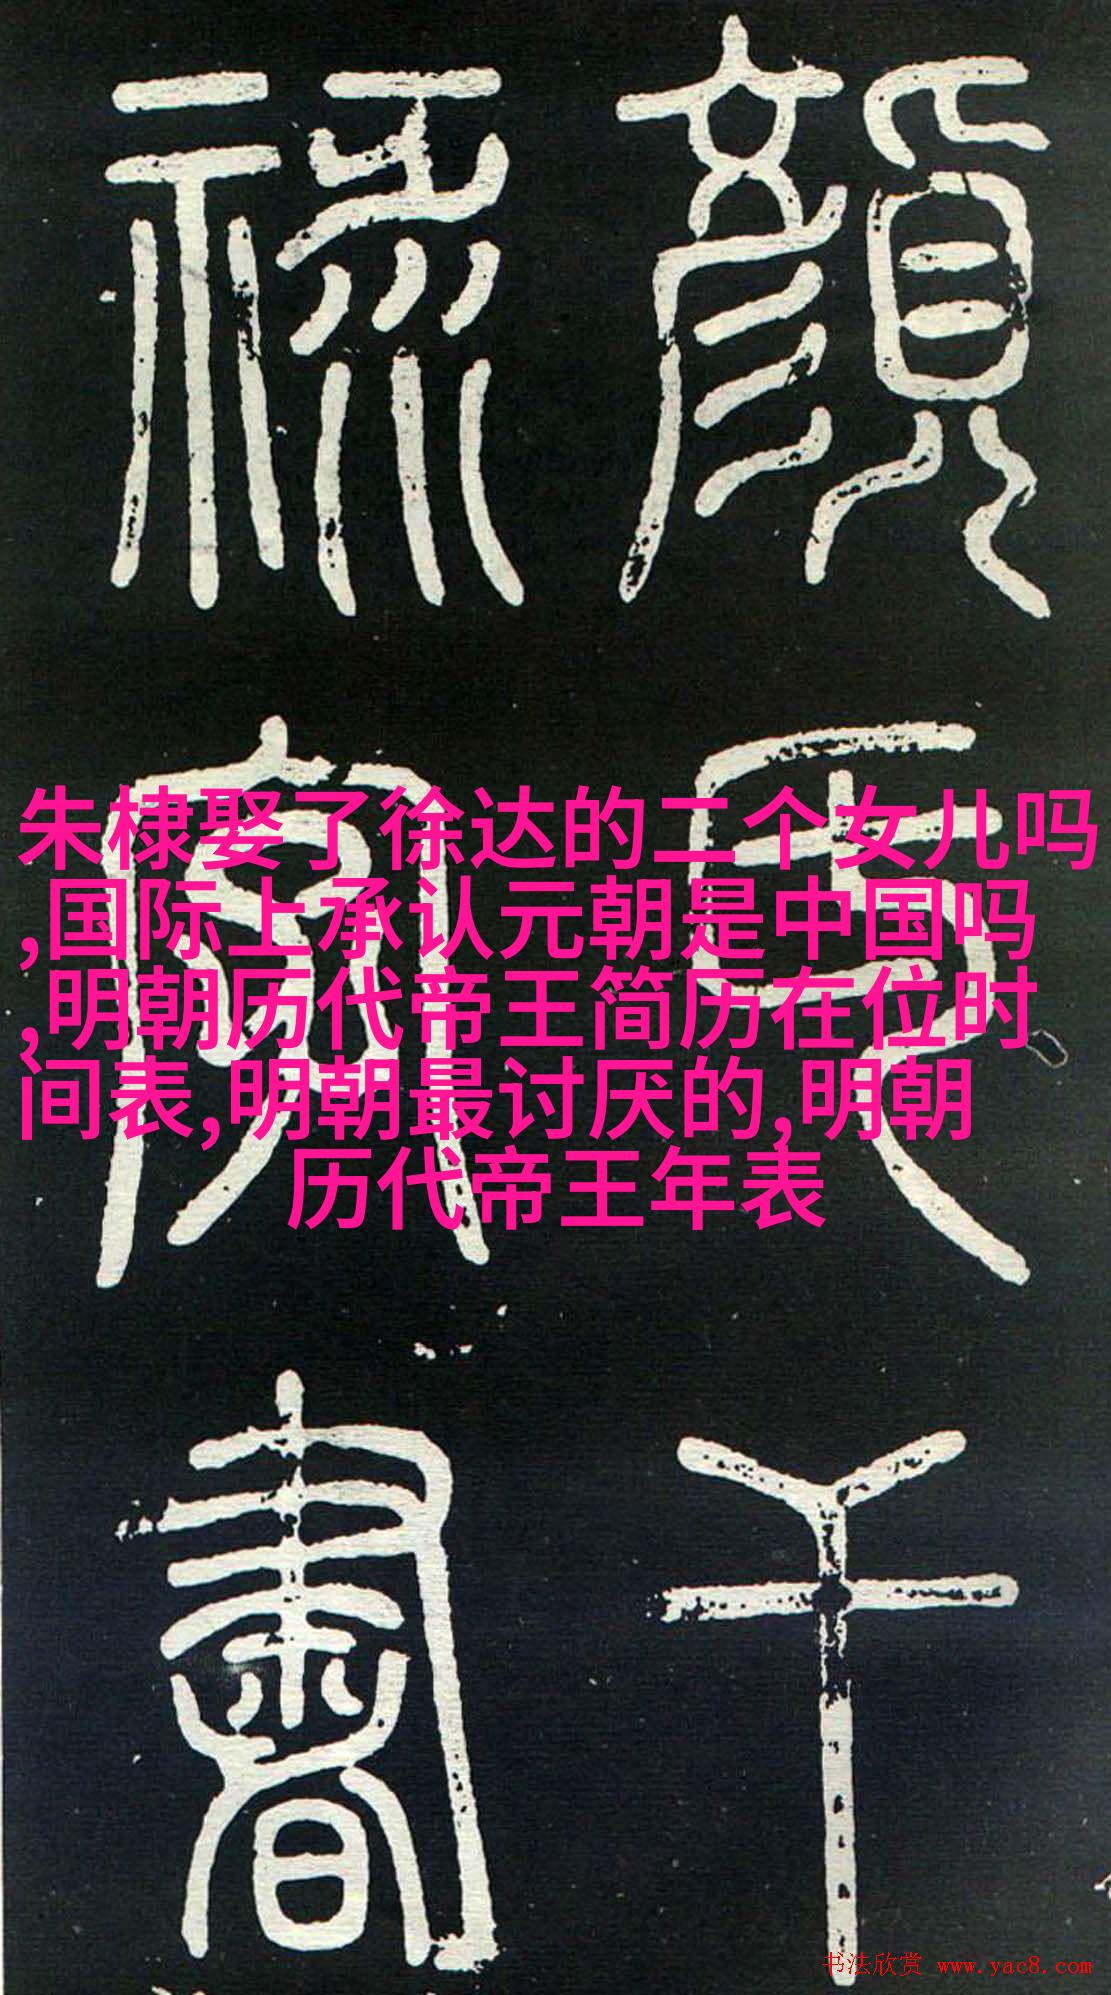 朱棣娶了徐达的二个女儿吗
,国际上承认元朝是中国吗
,明朝历代帝王简历在位时
间表,明朝最讨厌的,明朝
历代帝王年表
顏
干
書
书法欣赏 www.yac8.com